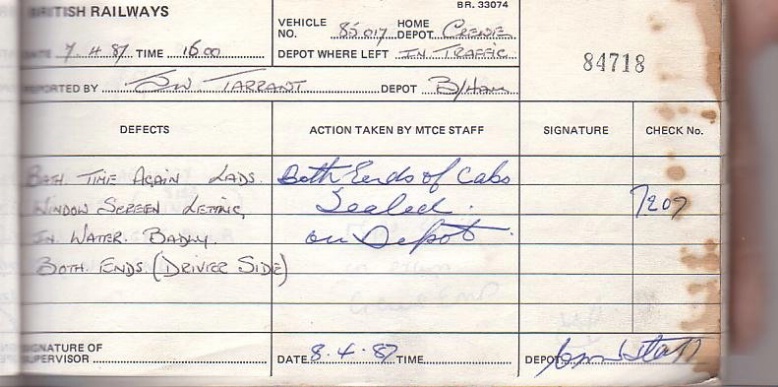 BR. 33074
BRITISH RAILWAYS
VEHICLE NO. 85017 HOME DEPOT CREWE
DATE 7.4.87 TIME 1600 DEPOT WHERE LEFT IN TRAFFIC
84718
REPORTED BY TARRANT DEPOT B/HAM
DEFECTS ACTION TAKEN BY MTCE STAFF SIGNATURE CHECK No.
BATH TIME AGAIN LADS. Both Ends of Cabs
WINDOW SCREEN LETTING, Sealed. 7207
IN WATER BADLY. on Depot.
BOTH ENDS (DRIVER SIDE)
SIGNATURE OF SUPERVISOR DATE 8.4.87 TIME DEPOT